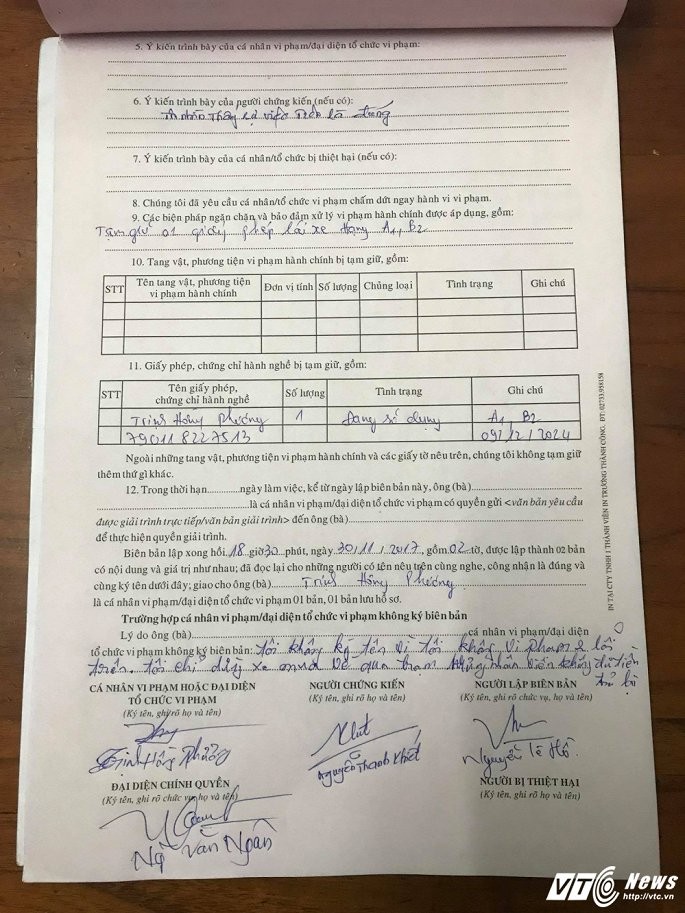 5. Ý kiến trình bày của cá nhân vi phạm/đại diện tổ chức vi phạm:
6. Ý kiến trình bày của người chứng kiến (nếu có):
thấy sự việc trên là đúng
7. Ý kiến trình bày của cá nhân/tổ chức bị thiệt hại (nếu có):
8. Chúng tôi đã yêu cầu cá nhân/tổ chức vi phạm chấm dứt ngay hành vi vi phạm.
9. Các biện pháp ngăn chặn và bảo đảm xử lý vi phạm hành chính được áp dụng, gồm:
Tạm giữ 01 giấy phép lái xe hạng A1, B2
10. Tang vật, phương tiện vi phạm hành chính bị tạm giữ, gồm:
STT Tên tang vật, phương tiện vi phạm hành chính Đơn vị tính Số lượng Chủng loại Tình trạng Ghi chú
11. Giấy phép, chứng chỉ hành nghề bị tạm giữ, gồm:
STT Tên giấy phép, chứng chỉ hành nghề Số lượng Tình trạng Ghi chú
Trịnh Hồng Phương 1 Đang sử dụng A1, B2
790118227513 09/12/2024
Ngoài những tang vật, phương tiện vi phạm hành chính và các giấy tờ nêu trên, chúng tôi không tạm giữ
thêm thứ gì khác.
12. Trong thời hạn.............ngày làm việc, kể từ ngày lập biên bản này, ông (bà)
là cá nhân vi phạm/đại diện tổ chức vi phạm có quyền gửi <văn bản yêu cầu
được giải trình trực tiếp/văn bản giải trình> đến ông (bà)
để thực hiện quyền giải trình.
Biên bản lập xong hồi 18 giờ 30 phút, ngày 30/11/2017, gồm 02 tờ, được lập thành 02 bản
có nội dung và giá trị như nhau; đã đọc lại cho những người có tên nêu trên cùng nghe, công nhận là đúng và
cùng ký tên dưới đây; giao cho ông (bà) Trịnh Hồng Phương
là cá nhân vi phạm/đại diện tổ chức vi phạm 01 bản, 01 bản lưu hồ sơ.
Trường hợp cá nhân vi phạm/đại diện tổ chức vi phạm không ký biên bản
Lý do ông (bà) cá nhân vi phạm/đại diện
tổ chức vi phạm không ký biên bản: tôi không ký tên vì tôi không vi phạm 2 lỗi
trên. tôi chỉ dừng xe mua vé qua trạm nhưng nhân viên không đủ tiền
trả lại
CÁ NHÂN VI PHẠM HOẶC ĐẠI DIỆN TỔ CHỨC VI PHẠM
(Ký tên, ghi rõ họ và tên)
NGƯỜI CHỨNG KIẾN
(Ký tên, ghi rõ họ và tên)
NGƯỜI LẬP BIÊN BẢN
(Ký tên, ghi rõ chức vụ, họ và tên)
Trịnh Hồng Phương
Nguyễn Thanh Khiết
Nguyễn Lê Hồ
ĐẠI DIỆN CHÍNH QUYỀN
(Ký tên, ghi rõ chức vụ, họ và tên)
NGƯỜI BỊ THIỆT HẠI
(Ký tên, ghi rõ họ và tên)
Ngô Văn Ngoãn
IN TẠI CTY TNHH 1 THÀNH VIÊN IN TRƯỜNG THÀNH CÔNG. ĐT: 02733.958158
VTC News
http://vtc.vn